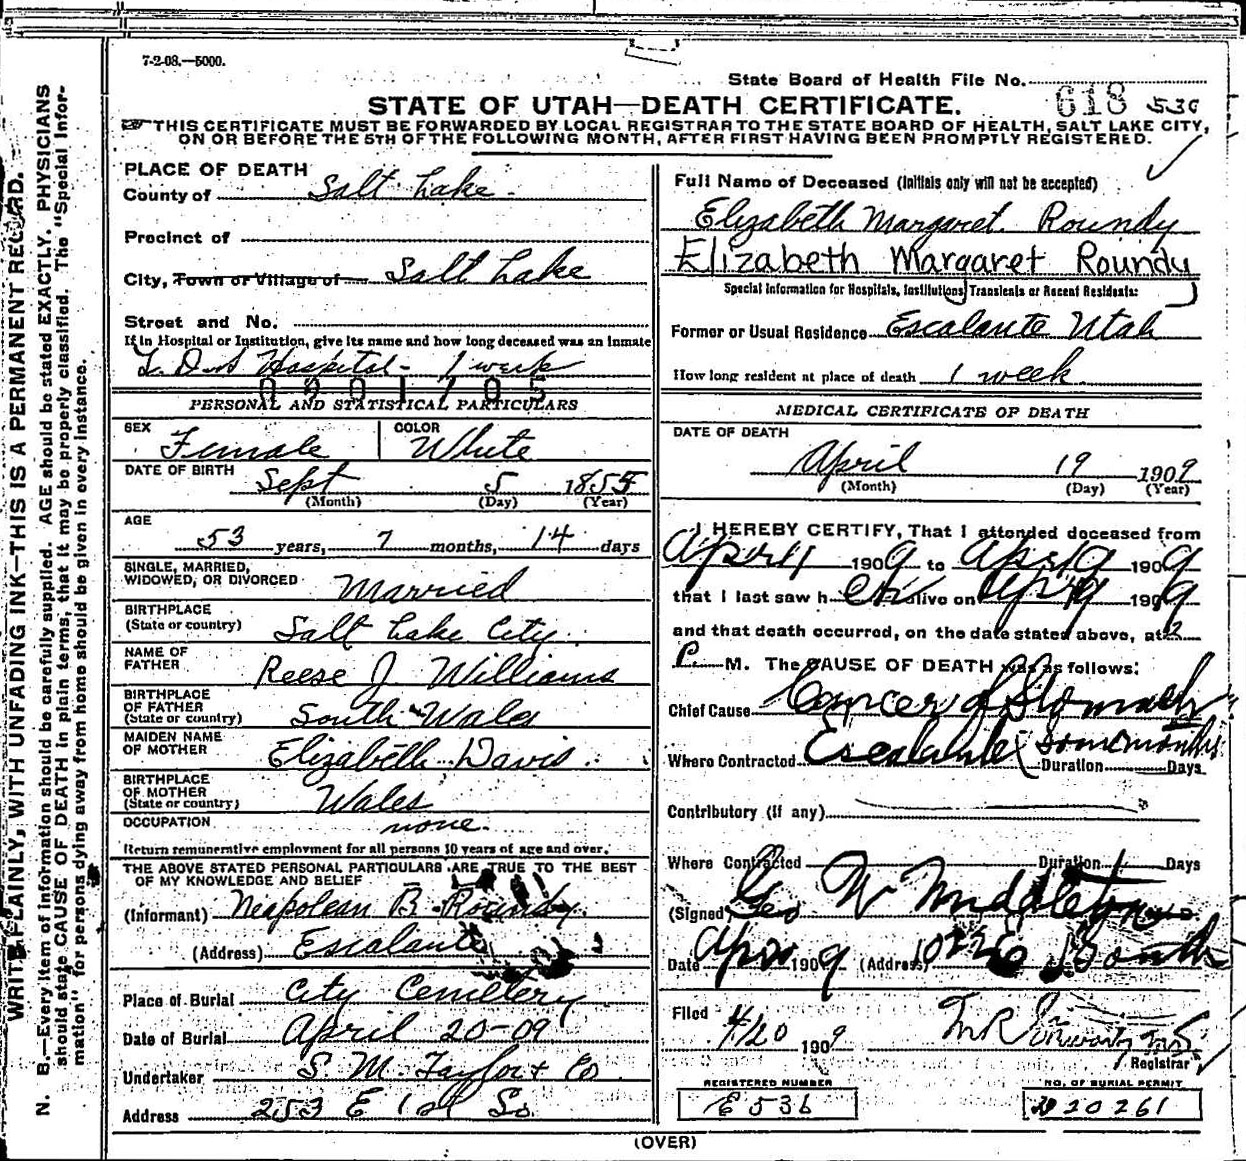 7-2-08.—5000.
State Board of Health File No. 618 530
STATE OF UTAH—DEATH CERTIFICATE.
THIS CERTIFICATE MUST BE FORWARDED BY LOCAL REGISTRAR TO THE STATE BOARD OF HEALTH, SALT LAKE CITY,
ON OR BEFORE THE 5TH OF THE FOLLOWING MONTH, AFTER FIRST HAVING BEEN PROMPTLY REGISTERED.
WRITE PLAINLY, WITH UNFADING INK—THIS IS A PERMANENT RECORD.
N. B.—Every item of information should be carefully supplied. AGE should be stated EXACTLY. PHYSICIANS
should state CAUSE OF DEATH in plain terms, that it may be properly classified. The "Special Infor-
mation" for persons dying away from home should be given in every instance.
PLACE OF DEATH
County of Salt Lake
Precinct of
City, Town or Village of Salt Lake
Street and No.
If in Hospital or Institution, give its name and how long deceased was an inmate
L. D. S Hospital - 1 week
0901705
PERSONAL AND STATISTICAL PARTICULARS
SEX Female COLOR White
DATE OF BIRTH Sept 5 1855
(Month) (Day) (Year)
AGE
53 years, 7 months, 14 days
SINGLE, MARRIED,
WIDOWED, OR DIVORCED Married
BIRTHPLACE
(State or country) Salt Lake City
NAME OF
FATHER Reese J Williams
BIRTHPLACE
OF FATHER
(State or country) South Wales
MAIDEN NAME
OF MOTHER Elizabeth Davis
BIRTHPLACE
OF MOTHER
(State or country) Wales
OCCUPATION none.
Return remunerative employment for all persons 10 years of age and over.
THE ABOVE STATED PERSONAL PARTICULARS ARE TRUE TO THE BEST
OF MY KNOWLEDGE AND BELIEF
(Informant) Neapolean B. Roundy
(Address) Escalante
Place of Burial City Cemetery
Date of Burial April 20-09
Undertaker S. M. Taylor + Co
Address 253 E 1st So
Full Name of Deceased (Initials only will not be accepted)
Elizabeth Margaret Roundy
Elizabeth Margaret Roundy
Special Information for Hospitals, Institutions, Transients or Recent Residents:
Former or Usual Residence Escalante Utah
How long resident at place of death 1 week
MEDICAL CERTIFICATE OF DEATH
DATE OF DEATH
April 19 1909
(Month) (Day) (Year)
I HEREBY CERTIFY, That I attended deceased from
Apr 11 1909 to Apr 19 1909
that I last saw h er alive on Apr 19 1909
and that death occurred, on the date stated above, at 2
P. M. The CAUSE OF DEATH was as follows:
Chief Cause Cancer of Stomach
Where Contracted Escalante Some months
Duration Days
Contributory (if any)
Where Contracted Duration Days
(Signed) Geo W Middleton M.D.
Date Apr 20 1909 (Address) E South
Filed 4/20 1909
Registrar
REGISTERED NUMBER
E 536
NO. OF BURIAL PERMIT
20261
(OVER)